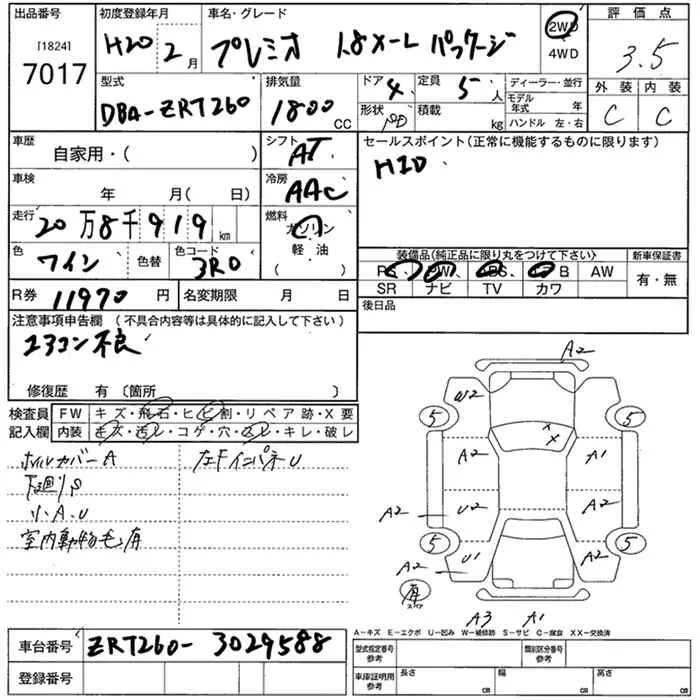 出品番号 初度登録年月 車名・グレード 評価点
[1824] 7017 H20 2月 プレミオ 1.8X-L パッケージ 2WD 4WD 3.5
型式 排気量 ドア 4 定員 5人 ディーラー・並行 外装 内装
DBA-ZRT260 1800cc 形状 積載 kg モデル年式 年 ハンドル 左・右 C C
車歴 自家用・( ) シフト AT セールスポイント(正常に機能するものに限ります)
H20
車検 年 月( 日) 冷房 AAC
走行 20万8千919km 燃料 ガソリン 軽・油 ( )
色 ワイン 色替 色コード 3R0
装備品(純正品に限り丸をつけて下さい) 新車保証書
PS PW ABS エアB AW 有・無
SR ナビ TV カワ
R券 11970円 名変期限 月 日 後日品
注意事項申告欄 (不具合内容等は具体的に記入して下さい)
エアコン不良
修復歴 有 〔箇所 〕
検査員 FW キズ・飛石・ヒビ割・リペア跡・X要
記入欄 内装 キズ・汚レ・コゲ・穴・スレ・キレ・破レ
ホイルカバーA 左Fインパネ U
下廻りS
小A.U
室内動物モウ有
A2
W2
5 5
A2 A1
A2 U2 A2
5 5
A2 U1 A2
有
スペア
A3 A1
A-キズ E-エクボ U-凹み W-補修跡 S-サビ C-腐食 XX-交換済
車台番号 ZRT260-3029588
型式指定番号 参考 類別区分番号 参考
登録番号
車庫証明用 参考 長さ cm 幅 cm 高さ cm